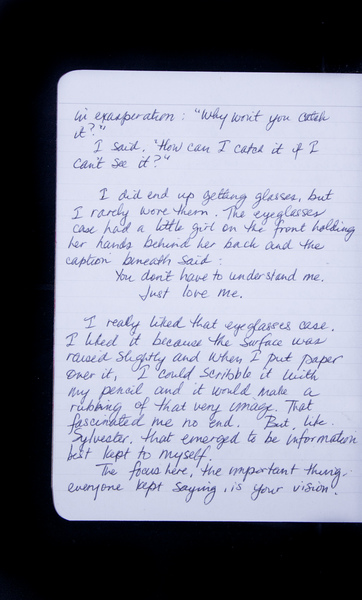 in exasperation: "Why won't you catch
it?"
I said, "How can I catch it if I
can't see it?"
I did end up getting glasses, but
I rarely wore them. The eyeglasses
case had a little girl on the front holding
her hands behind her back and the
caption beneath said:
You don't have to understand me.
Just love me.
I really liked that eyeglasses case.
I liked it because the surface was
raised slightly and when I put paper
over it, I could scribble it with
my pencil and it would make a
rubbing of that very image. That
fascinated me no end. But, like
Sylvester, that emerged to be information
best kept to myself.
The focus here, the important thing,
everyone kept saying, is your vision.